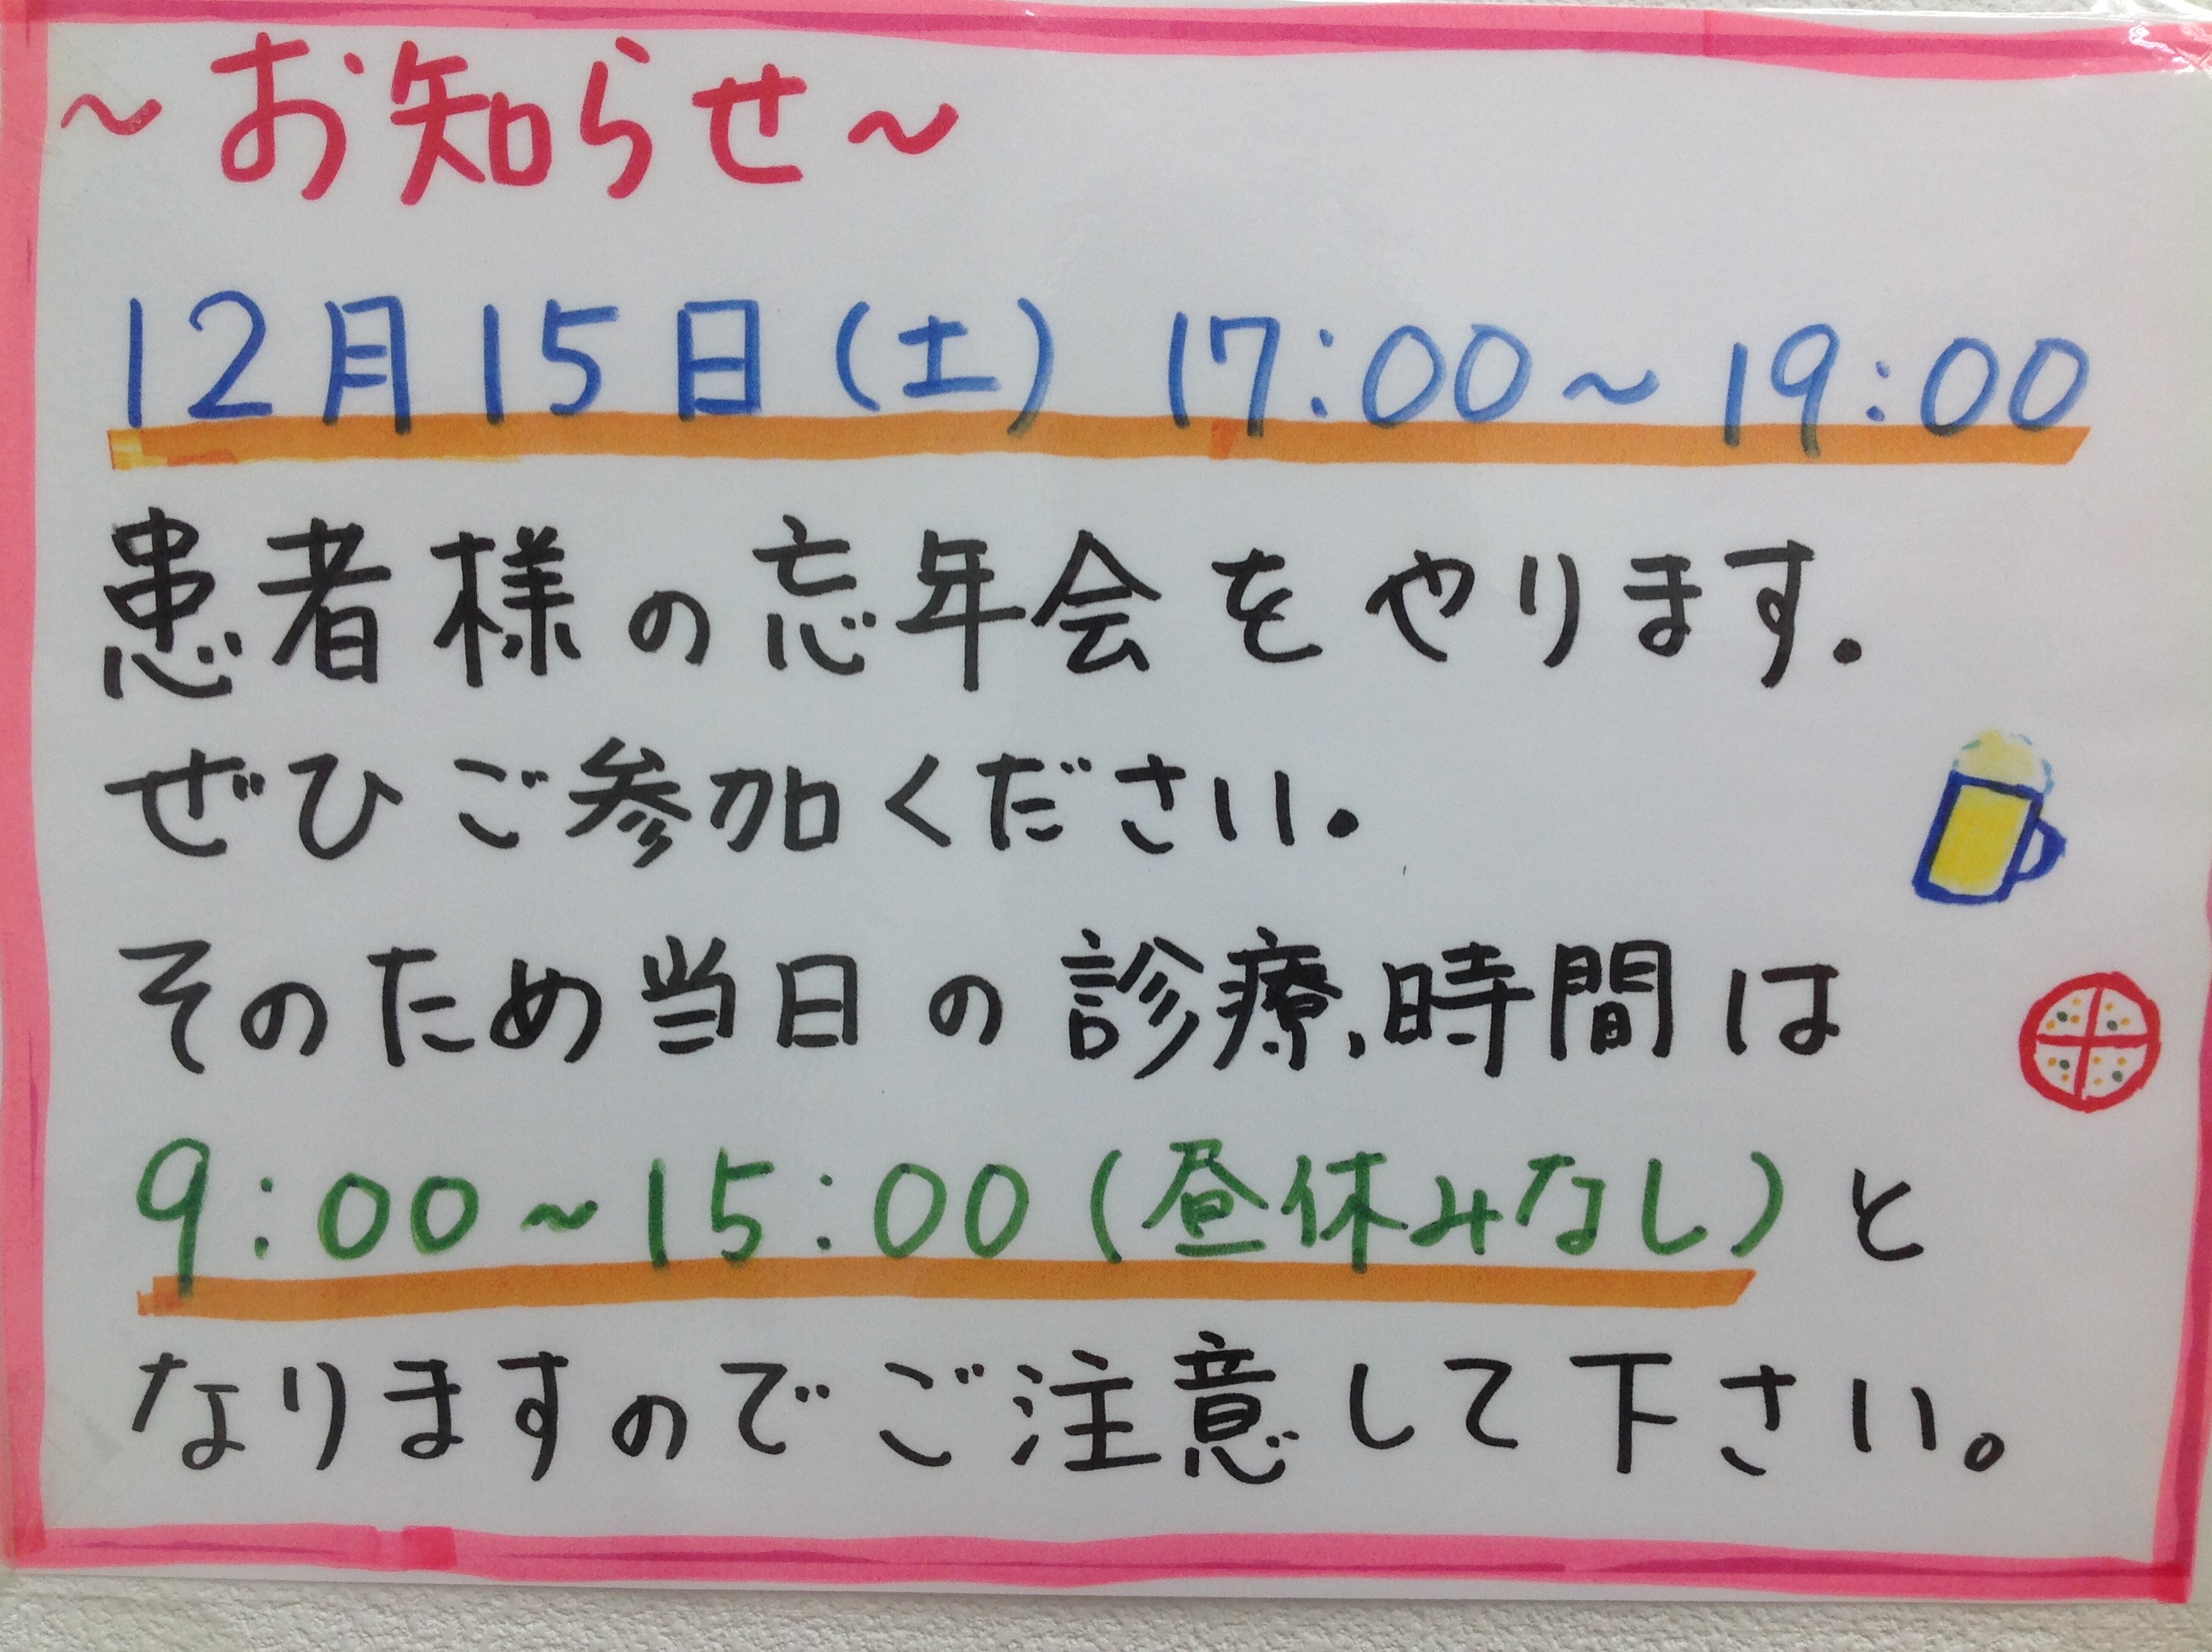 ～お知らせ～
12月15日(土) 17:00～19:00
患者様の忘年会をやります.
ぜひご参加ください.
そのため当日の診療時間は
9:00～15:00(昼休みなし)と
なりますのでご注意して下さい。